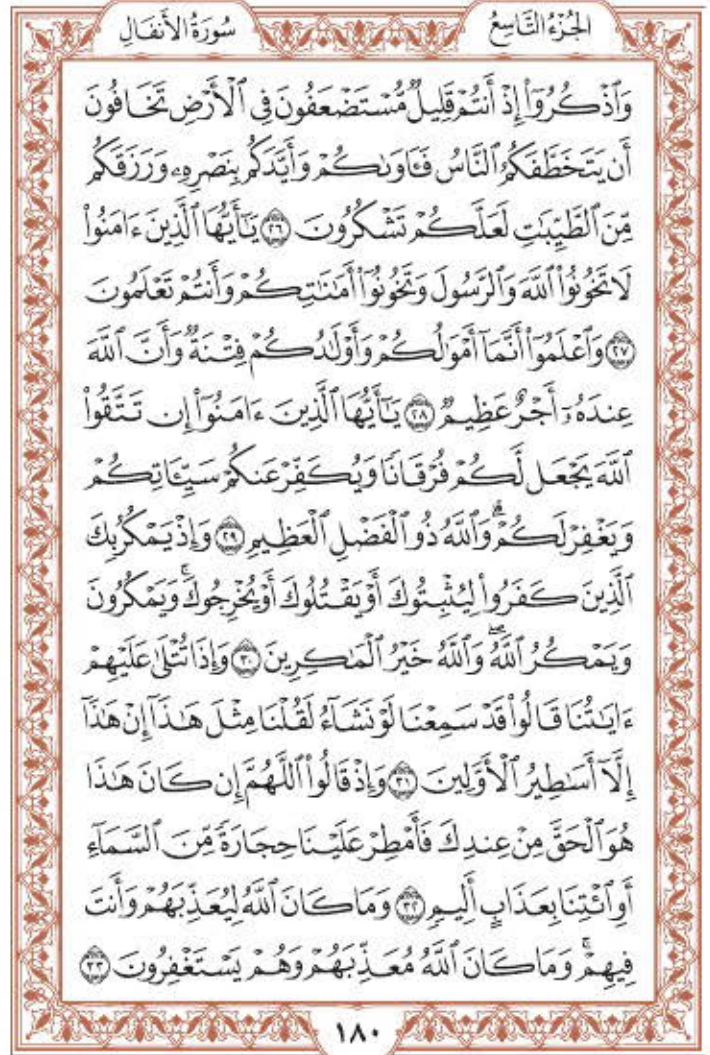 الجُزْءُ التَّاسِعُ
سُورَةُ الأَنفَالِ
وَٱذْكُرُوٓا۟ إِذْ أَنتُمْ قَلِيلٌ مُّسْتَضْعَفُونَ فِى ٱلْأَرْضِ تَخَافُونَ
أَن يَتَخَطَّفَكُمُ ٱلنَّاسُ فَـَٔاوَىٰكُمْ وَأَيَّدَكُم بِنَصْرِهِۦ وَرَزَقَكُم
مِّنَ ٱلطَّيِّبَـٰتِ لَعَلَّكُمْ تَشْكُرُونَ ٢٦ يَـٰٓأَيُّهَا ٱلَّذِينَ ءَامَنُوا۟
لَا تَخُونُوا۟ ٱللَّهَ وَٱلرَّسُولَ وَتَخُونُوٓا۟ أَمَـٰنَـٰتِكُمْ وَأَنتُمْ تَعْلَمُونَ
٢٧ وَٱعْلَمُوٓا۟ أَنَّمَآ أَمْوَٰلُكُمْ وَأَوْلَـٰدُكُمْ فِتْنَةٌ وَأَنَّ ٱللَّهَ
عِندَهُۥٓ أَجْرٌ عَظِيمٌ ٢٨ يَـٰٓأَيُّهَا ٱلَّذِينَ ءَامَنُوٓا۟ إِن تَتَّقُوا۟
ٱللَّهَ يَجْعَل لَّكُمْ فُرْقَانًا وَيُكَفِّرْ عَنكُمْ سَيِّـَٔاتِكُمْ
وَيَغْفِرْ لَكُمْ ۗ وَٱللَّهُ ذُو ٱلْفَضْلِ ٱلْعَظِيمِ ٢٩ وَإِذْ يَمْكُرُ بِكَ
ٱلَّذِينَ كَفَرُوا۟ لِيُثْبِتُوكَ أَوْ يَقْتُلُوكَ أَوْ يُخْرِجُوكَ ۚ وَيَمْكُرُونَ
وَيَمْكُرُ ٱللَّهُ ۖ وَٱللَّهُ خَيْرُ ٱلْمَـٰكِرِينَ ٣٠ وَإِذَا تُتْلَىٰ عَلَيْهِمْ
ءَايَـٰتُنَا قَالُوا۟ قَدْ سَمِعْنَا لَوْ نَشَآءُ لَقُلْنَا مِثْلَ هَـٰذَآ إِنْ هَـٰذَآ
إِلَّآ أَسَـٰطِيرُ ٱلْأَوَّلِينَ ٣١ وَإِذْ قَالُوا۟ ٱللَّهُمَّ إِن كَانَ هَـٰذَا
هُوَ ٱلْحَقَّ مِنْ عِندِكَ فَأَمْطِرْ عَلَيْنَا حِجَارَةً مِّنَ ٱلسَّمَآءِ
أَوِ ٱئْتِنَا بِعَذَابٍ أَلِيمٍ ٣٢ وَمَا كَانَ ٱللَّهُ لِيُعَذِّبَهُمْ وَأَنتَ
فِيهِمْ ۚ وَمَا كَانَ ٱللَّهُ مُعَذِّبَهُمْ وَهُمْ يَسْتَغْفِرُونَ ٣٣
١٨٠